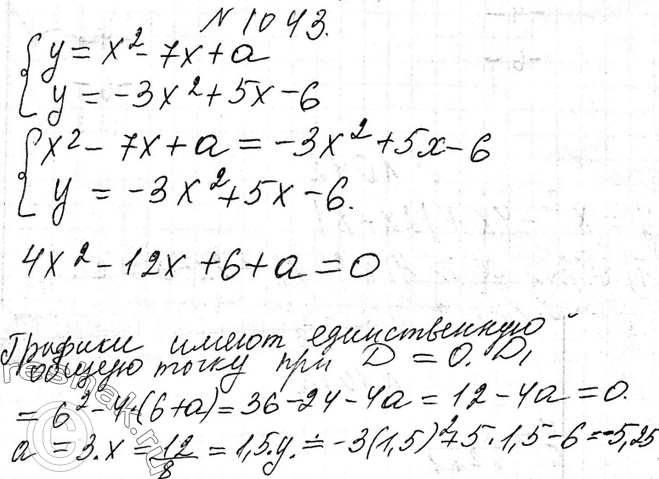 № 1043.
y = x² - 7x + a
y = -3x² + 5x - 6
x² - 7x + a = -3x² + 5x - 6
y = -3x² + 5x - 6.
4x² - 12x + 6 + a = 0
Графики имеют единственную
общую точку при D = 0. D₁
= 6² - 4·(6+a) = 36 - 24 - 4a = 12 - 4a = 0.
a = 3. x = 12/8 = 1,5. y = -3(1,5)² + 5·1,5 - 6 = -5,25